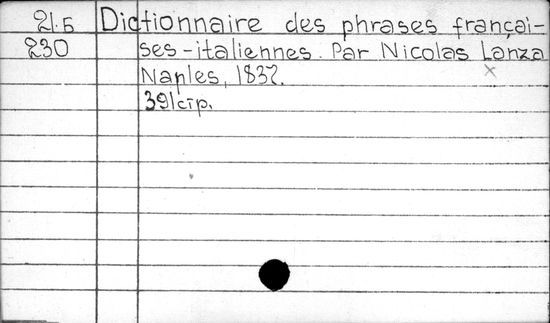 21.Б Dictionnaire des phrases françai-
230 ses-italiennes. Par Nicolas Lanza
Naples, 1837.
391 стр.